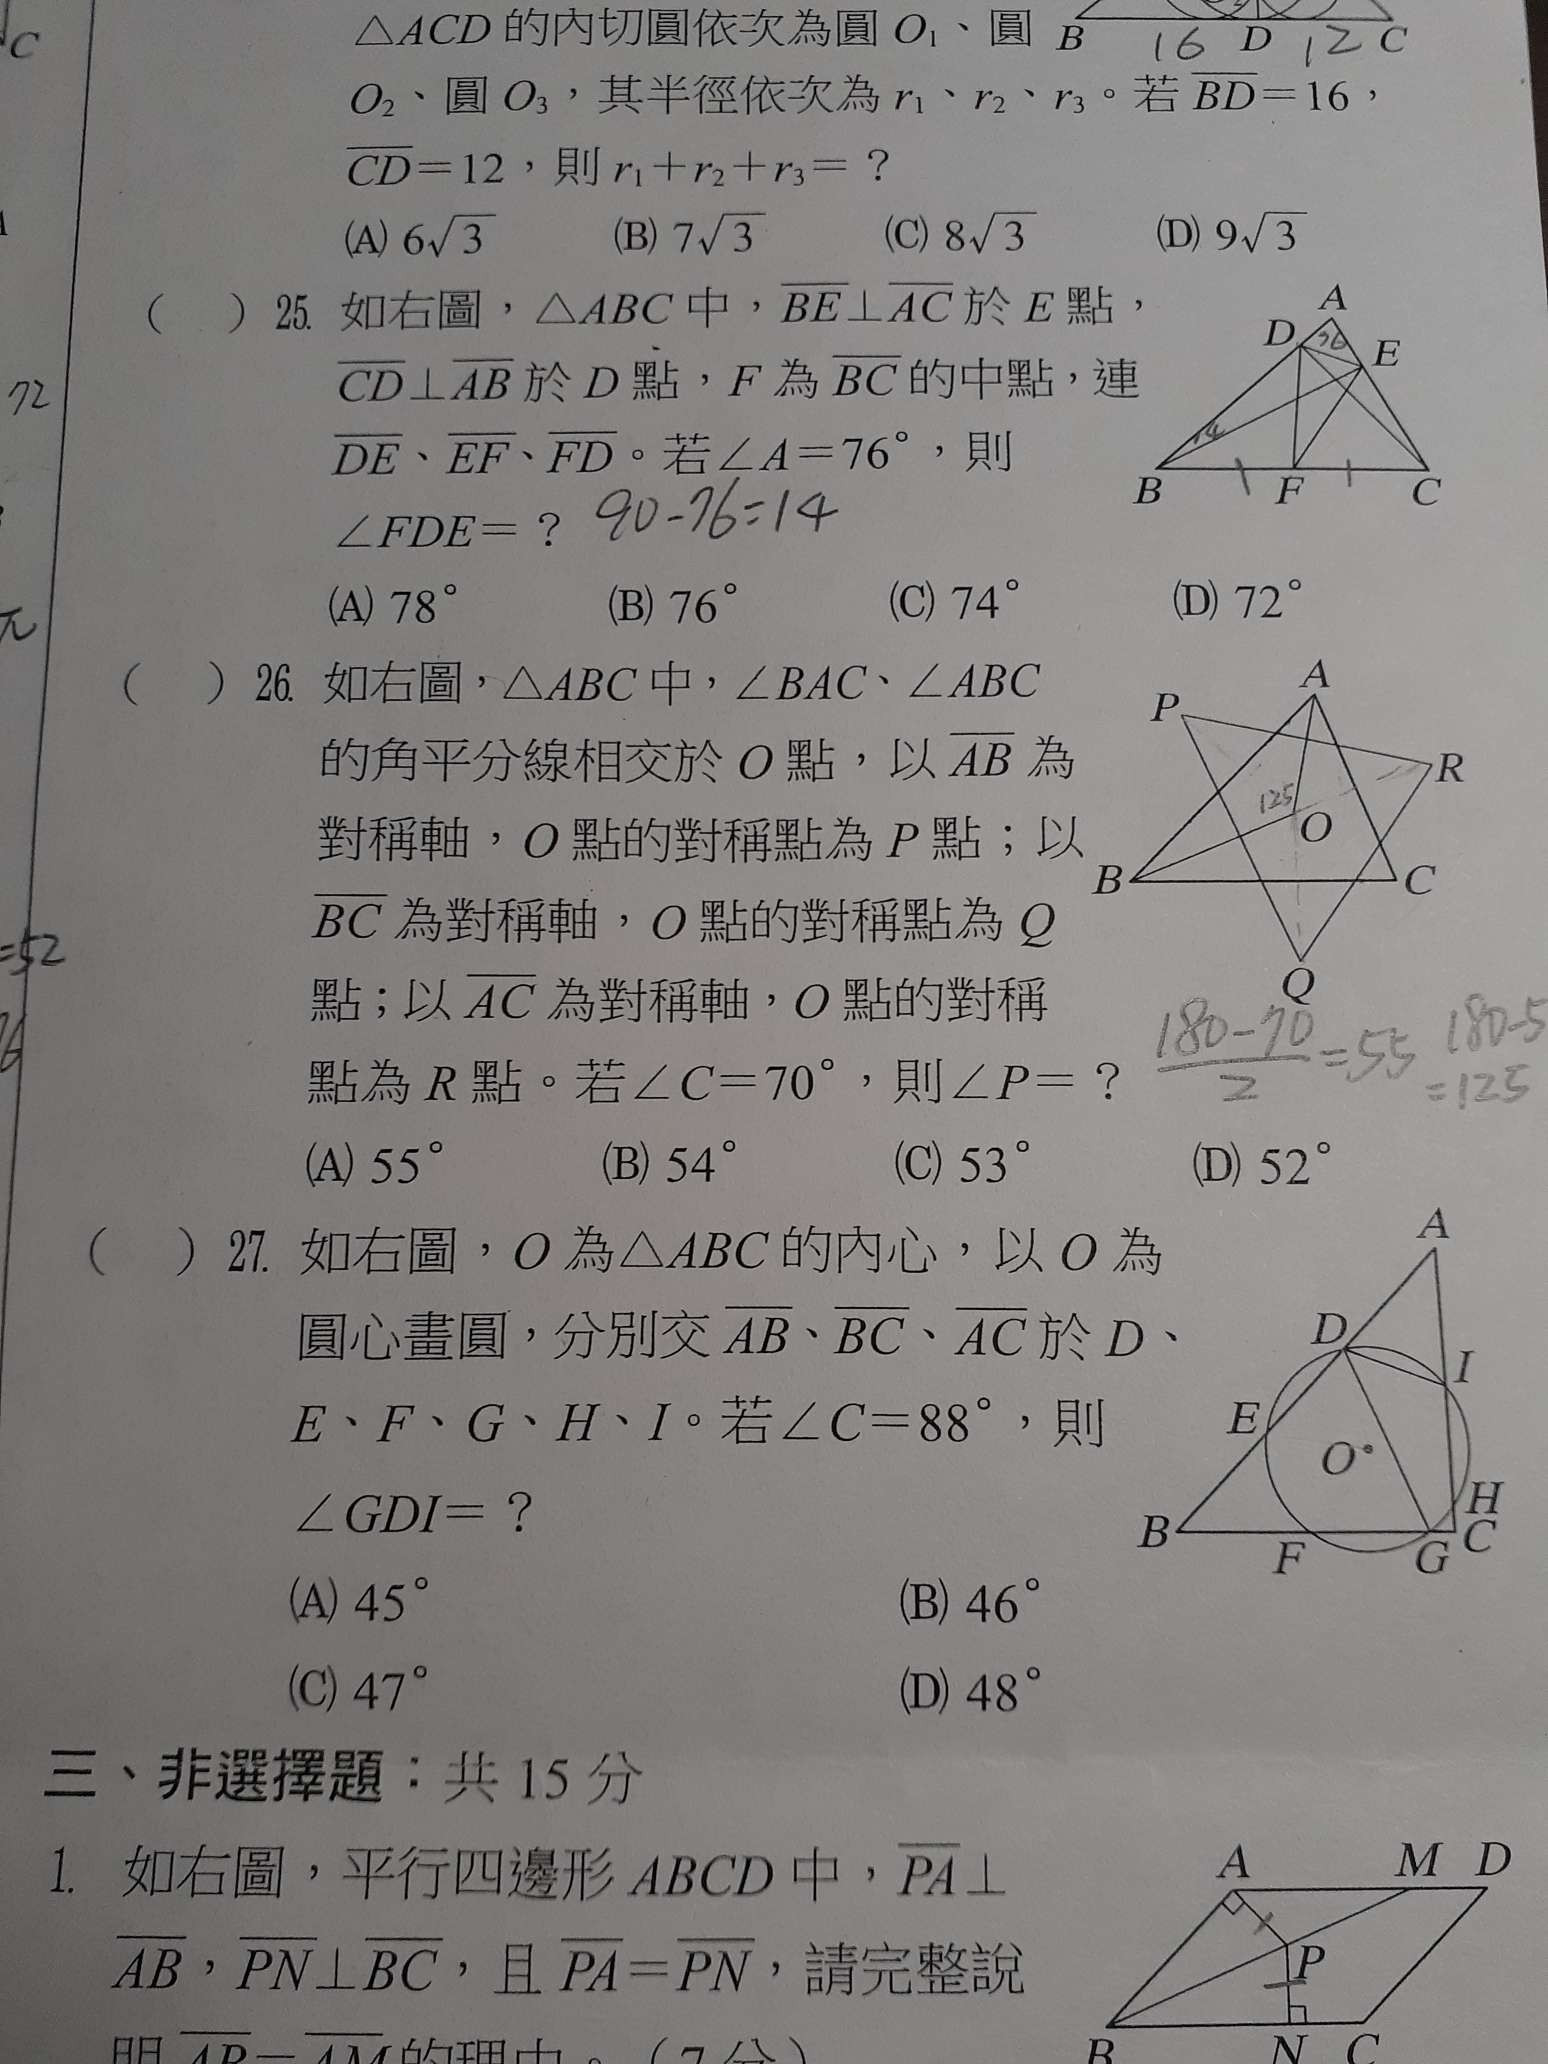 C
△ACD 的內切圓依次為圓 O₁、圓
B 16 D 12 C
O₂、圓 O₃，其半徑依次為 r₁、r₂、r₃。若 BD=16，
CD=12，則 r₁+r₂+r₃=？
(A) 6√3 (B) 7√3 (C) 8√3 (D) 9√3
( ) 25. 如右圖，△ABC 中，BE⊥AC 於 E 點，
CD⊥AB 於 D 點，F 為 BC 的中點，連
DE、EF、FD。若∠A=76°，則
∠FDE=？ 90-76=14
A
D 76 E
14
B F C
72
(A) 78° (B) 76° (C) 74° (D) 72°
π
( ) 26. 如右圖，△ABC 中，∠BAC、∠ABC
的角平分線相交於 O 點，以 AB 為
對稱軸，O 點的對稱點為 P 點；以
BC 為對稱軸，O 點的對稱點為 Q
點；以 AC 為對稱軸，O 點的對稱
點為 R 點。若∠C=70°，則∠P=？
A
P
R
125
O
B C
Q
180-70/2=55 180-5
=125
=52
(A) 55° (B) 54° (C) 53° (D) 52°
( ) 27. 如右圖，O 為△ABC 的內心，以 O 為
圓心畫圓，分別交 AB、BC、AC 於 D、
E、F、G、H、I。若∠C=88°，則
∠GDI=？
A
D
I
E
O
H
B F G C
(A) 45° (B) 46°
(C) 47° (D) 48°
三、非選擇題：共 15 分
1. 如右圖，平行四邊形 ABCD 中，PA⊥
AB，PN⊥BC，且 PA=PN，請完整說
明 AB=AM 的理由。（7 分）
A M D
P
B N C